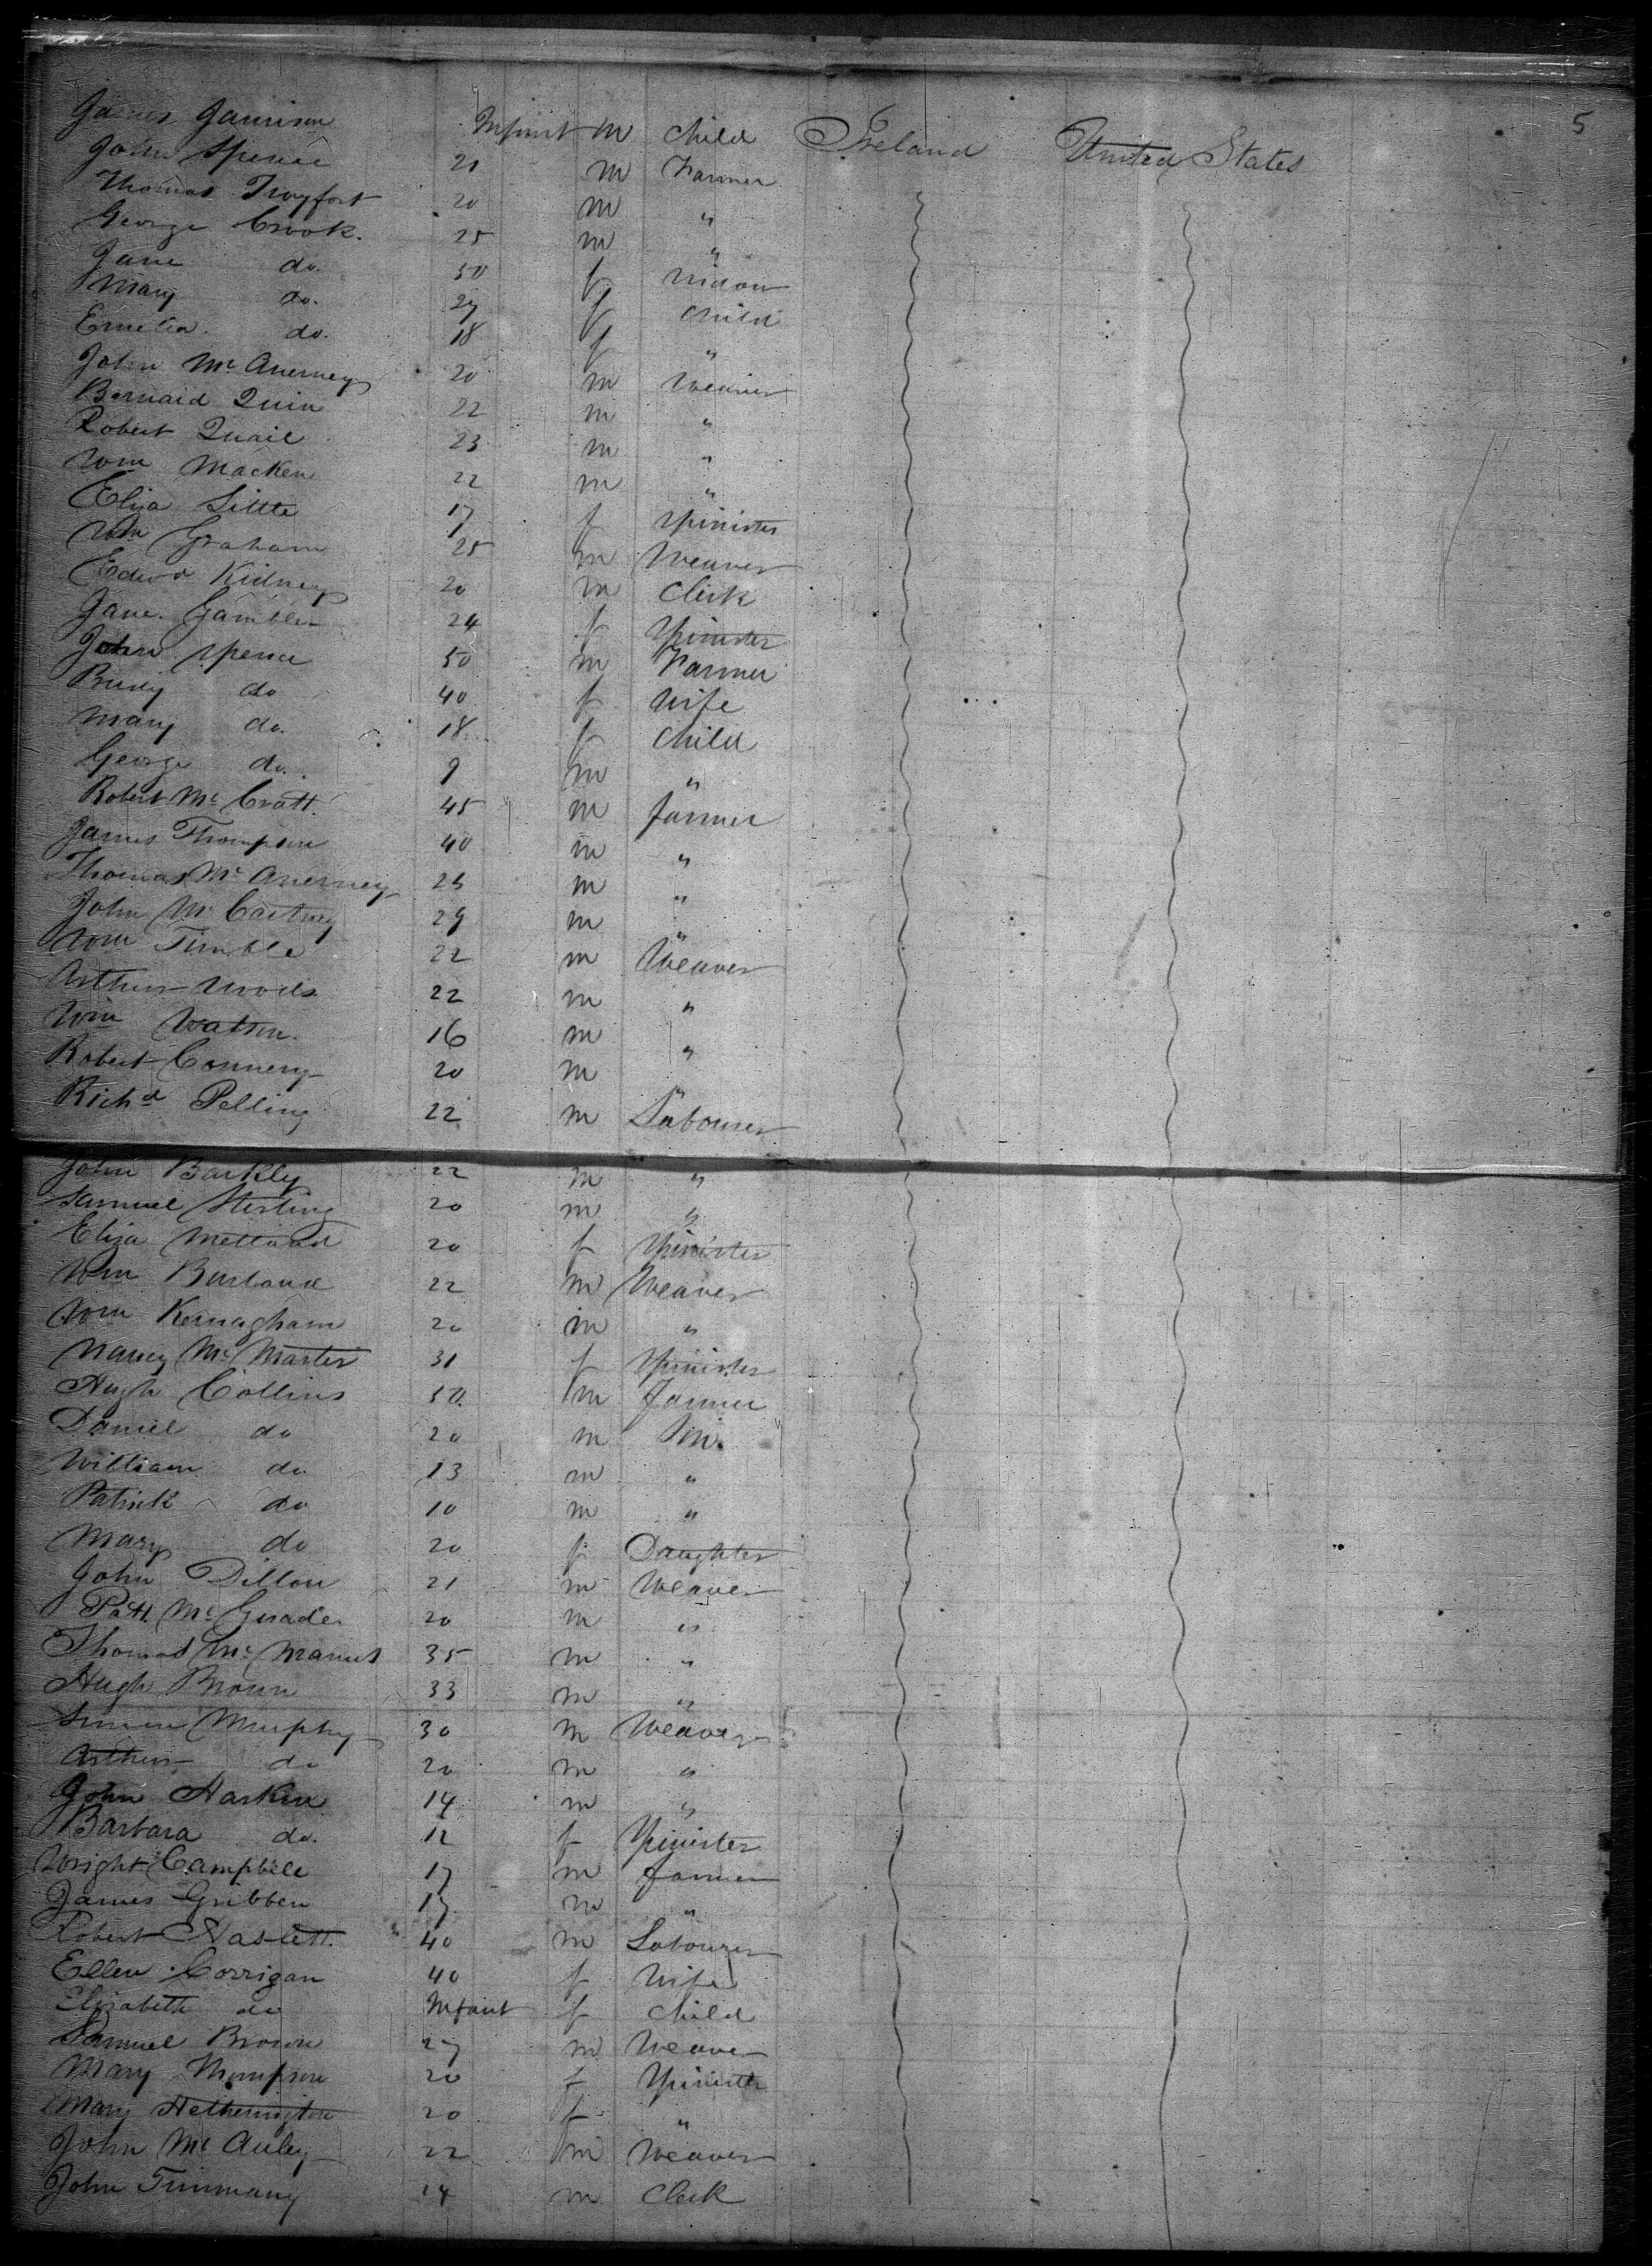 5
James Jamison Infant m Child Ireland United States
John Spence 21 m Farmer
Thomas 20 m "
George Crook. 25 m "
Jane do. 50 f Widow
Mary do. 27 f Child
Emelia do. 18 f "
John McAnerney 20 m Weaver
Bernard Quin 22 m "
Robert Quail 23 m "
Wm Macken 22 m "
Eliza Little 17 f Spinister
Wm Graham 25 m Weaver
Edwd Kidney 20 m Clerk
Jane Gambler 24 f Spinister
John Spence 50 m Farmer
do 40 f Wife
Mary do. 18 f Child
George do. 9 m "
Robert Mc Cratt. 45 m Farmer
James Thompson 40 m "
Thomas McAnerney m "
John McCartney 29 m "
Wm Timble 22 m Weaver
Arthur Woods 22 m "
Wm Watson. 16 m "
Robert Connery 20 m "
Richd Pelling 22 m Labourer
John Barkly 22 m "
Samuel Sterling 20 m "
Eliza 20 f Spinister
Wm Burland 22 m Weaver
Wm Kernagham 20 m "
Nancy McMaster 31 f Spinister
Hugh Collins 50 m Farmer
Daniel do 20 m
William do 13 m "
Patrick do 10 m "
Mary do 20 f Daughter
John Dillon 21 m Weaver
Patt. Mc 20 m "
Thomas McManus 35 m "
Hugh Brown 33 m "
Murphy 30 m Weaver
Arthur do 20 m "
John Harkin 14 m "
Barbara do. 12 f Spinister
Wright Campbell 17 m Farmer
James Gribben 17 m "
Robert Haslett. 40 m Labourer
Ellen Corrigan 40 f Wife
Elizabeth do Infant f Child
Samuel Brown 27 m Weaver
Mary Thompson 20 f Spinister
Mary Hetherington 20 f "
John McAuley 22 m Weaver
John Timmany 14 m Clerk